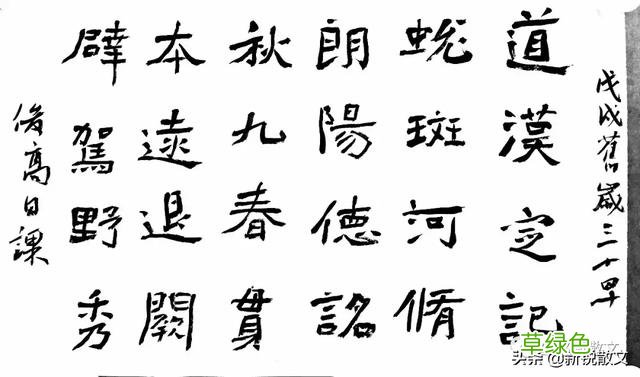 戊戌舊歲三十
道漢定記
斑河脩
朗陽德詺
秋九春貫
本遠退闕
駕野秀
高日課
草绿色
头条 @新锐散文